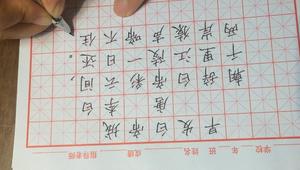 学校 年 班 姓名 成绩 指导老师
早发白帝城
唐 李白
朝辞白帝彩云间，
千里江陵一日还。
两岸猿声啼不住